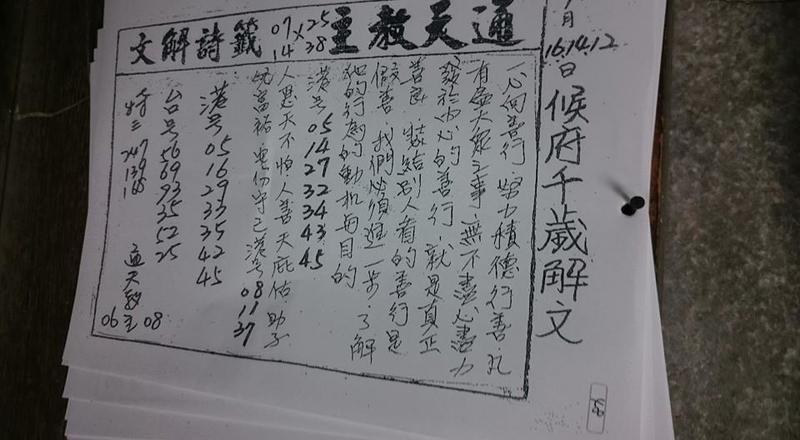 通天教主 25 38 × 07 14 籤詩解文
月 16.14.12 日 候府千歲解文
一心向善行.努力積德行善凡
有益大眾之事.無不盡心盡力
發於內心的善行.就是真正
善良 裝給別人看的善行是
假善 我們必須進一步了解
他的行為的動机与目的
港号 05 14 27 32 34 43 45
人惡天不怕人善天庇佑.助子
安份守己港号 08 11 37
港号 05 16 29 33 35 42 45
台号 56 69 93 35 52 25
特三 247 139 168 通天教主 06 08